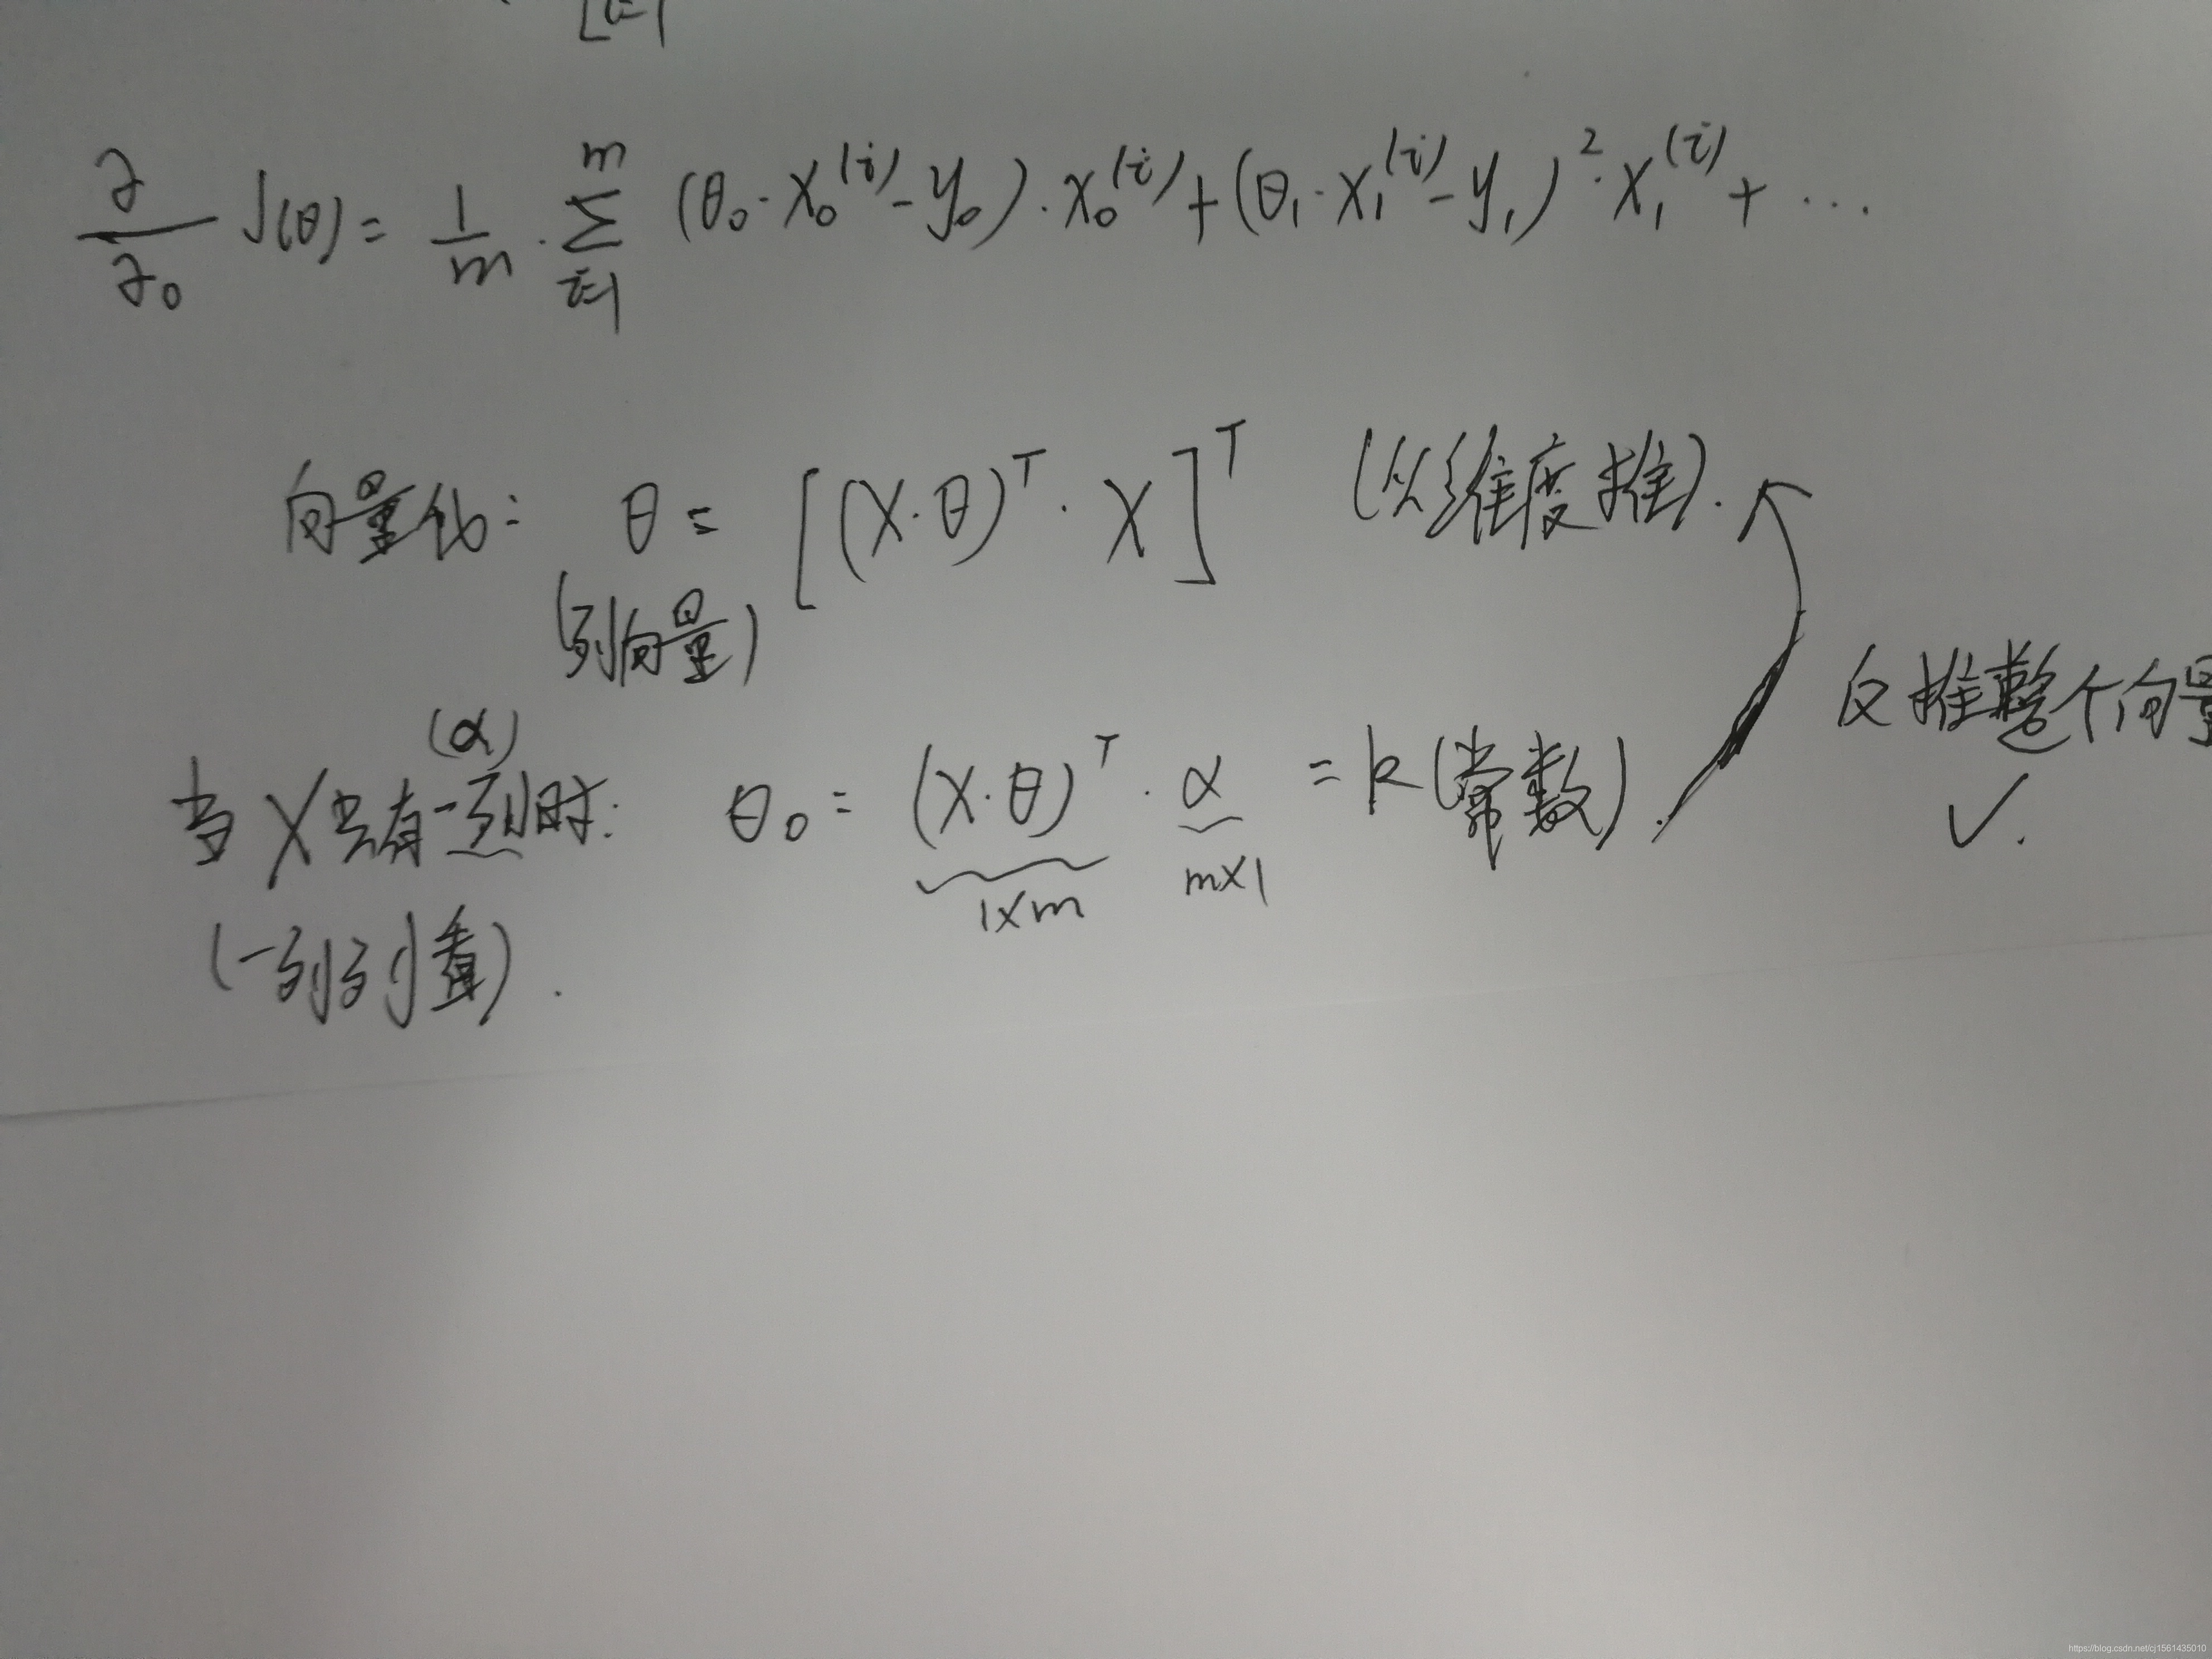 [i=1
∂/∂₀ J(θ) = 1/m · Σ_{i=1}^{m} (θ₀·x₀⁽ⁱ⁾-y₀)·x₀⁽ⁱ⁾+(θ₁·x₁⁽ⁱ⁾-y₁)²·x₁⁽ⁱ⁾+ ...
向量化: θ = [(X·θ)ᵀ · X]ᵀ (从维度推).
(列向量)
反推整个向量
✓.
(α)
当X只有一列时: θ₀ = (X·θ)ᵀ · α = k(常数).
1×m m×1
(一列列看).
https://blog.csdn.net/cj1561435010